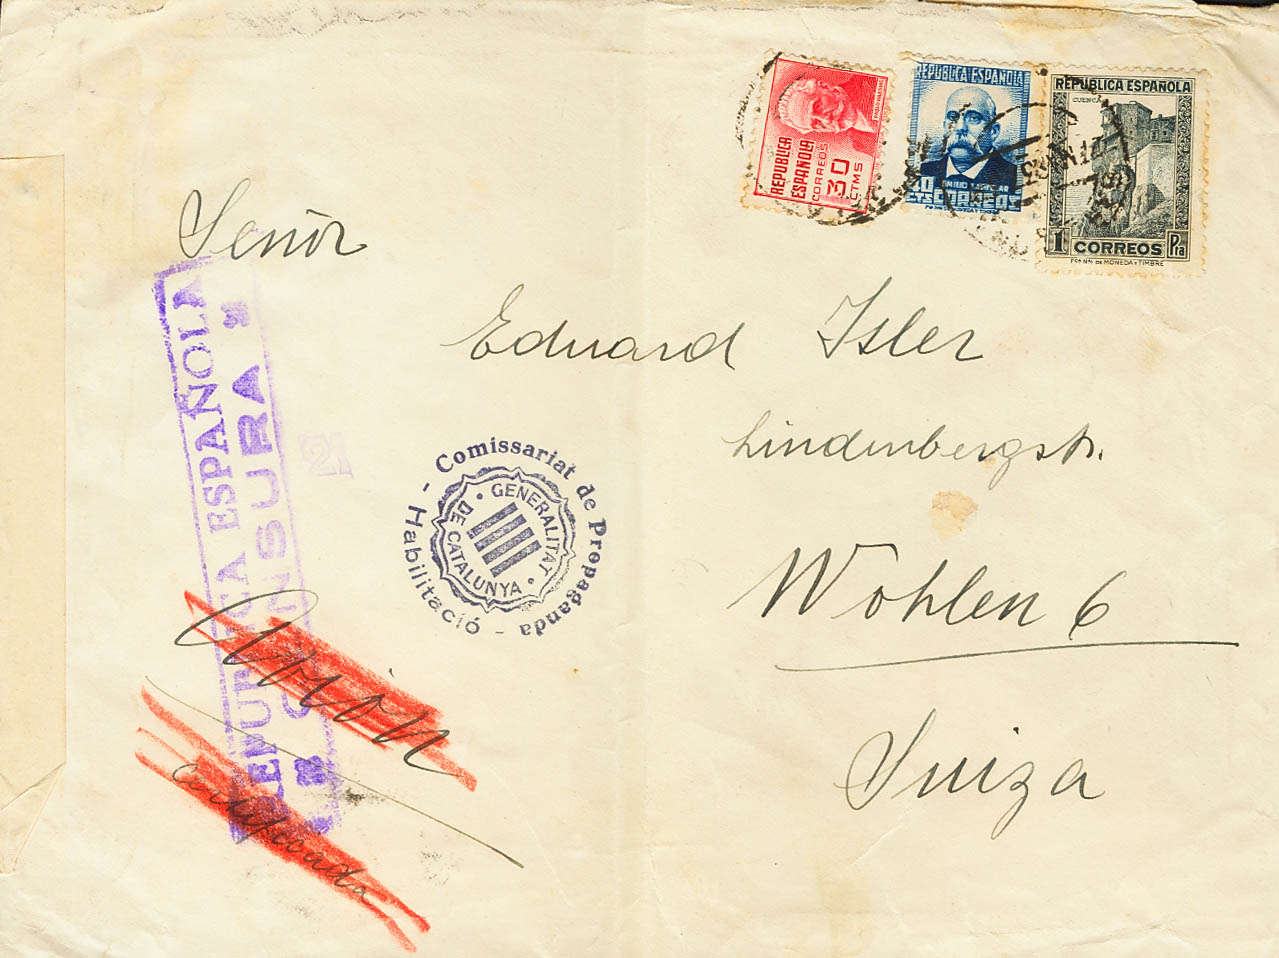 REPUBLICA
ESPAÑOLA
CORREOS
30
CTMS
REPUBLICA ESPAÑOLA
CORREOS
REPUBLICA ESPAÑOLA
CUENCA
1 CORREOS Pta
FCA NAL DE MONEDA Y TIMBRE
Señor
Eduard Isler
Lindenbergstr.
Wohlen 6
Suiza
REPUBLICA ESPAÑOLA
CENSURA
21
Comissariat de Propaganda - Habilitació -
GENERALITAT DE CATALUNYA
Avión
certificada